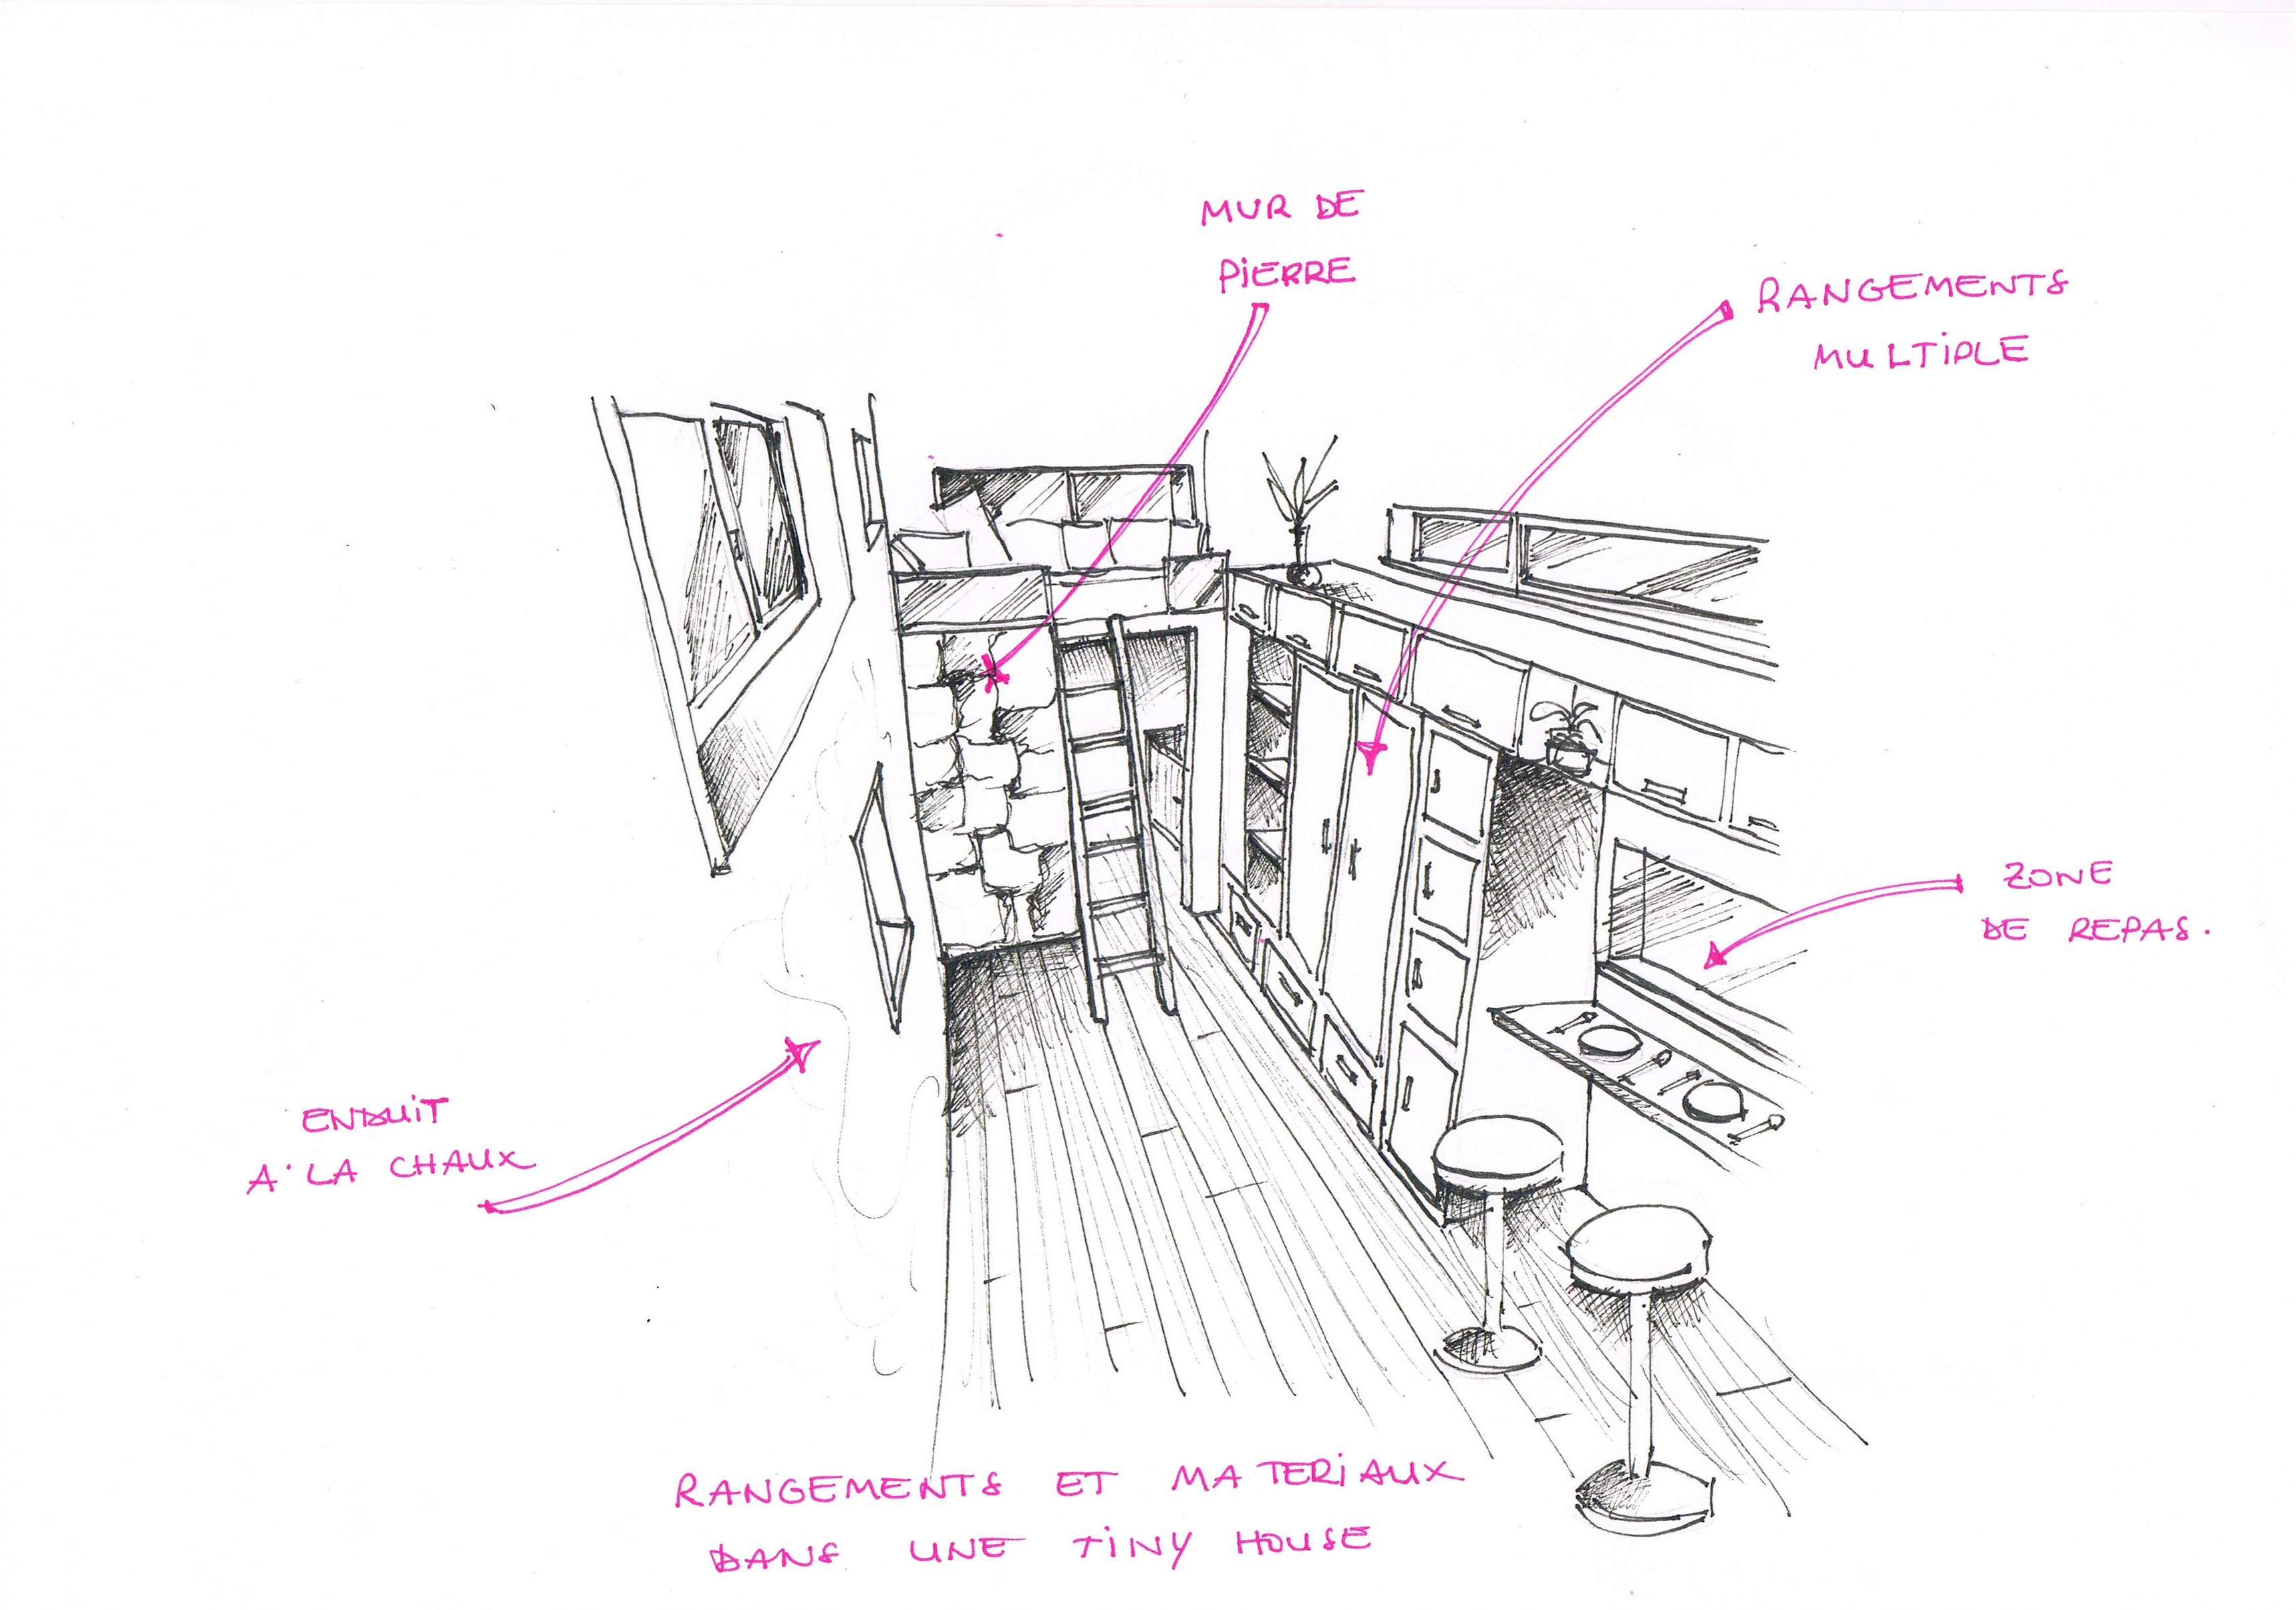 MUR DE
PiERRE
RANGEMENTS
MULTiPLE
ZONE
DE REPAS.
ENDUiT
A LA CHAUX
RANGEMENTS ET MATERiAUX
DANS UNE TiNY HOUSE